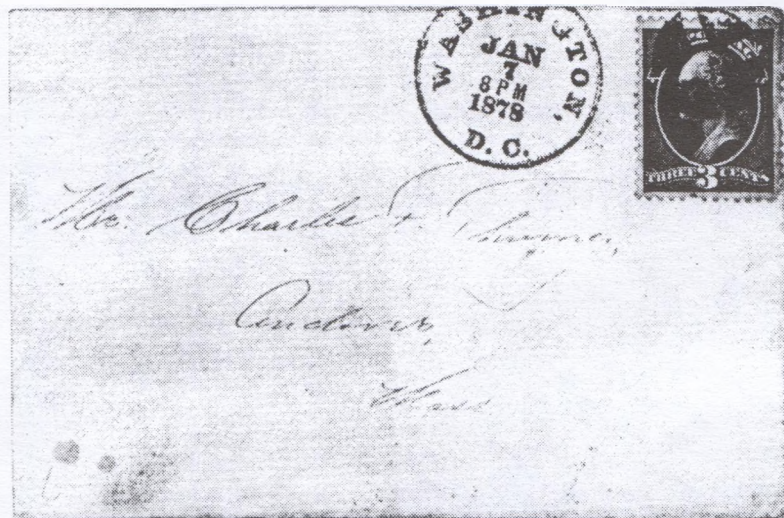 WASHINGTON,
JAN
7
8 PM
1878
D. C.
THREE 3 CENTS
Mr. Charles
Andover,
Mass